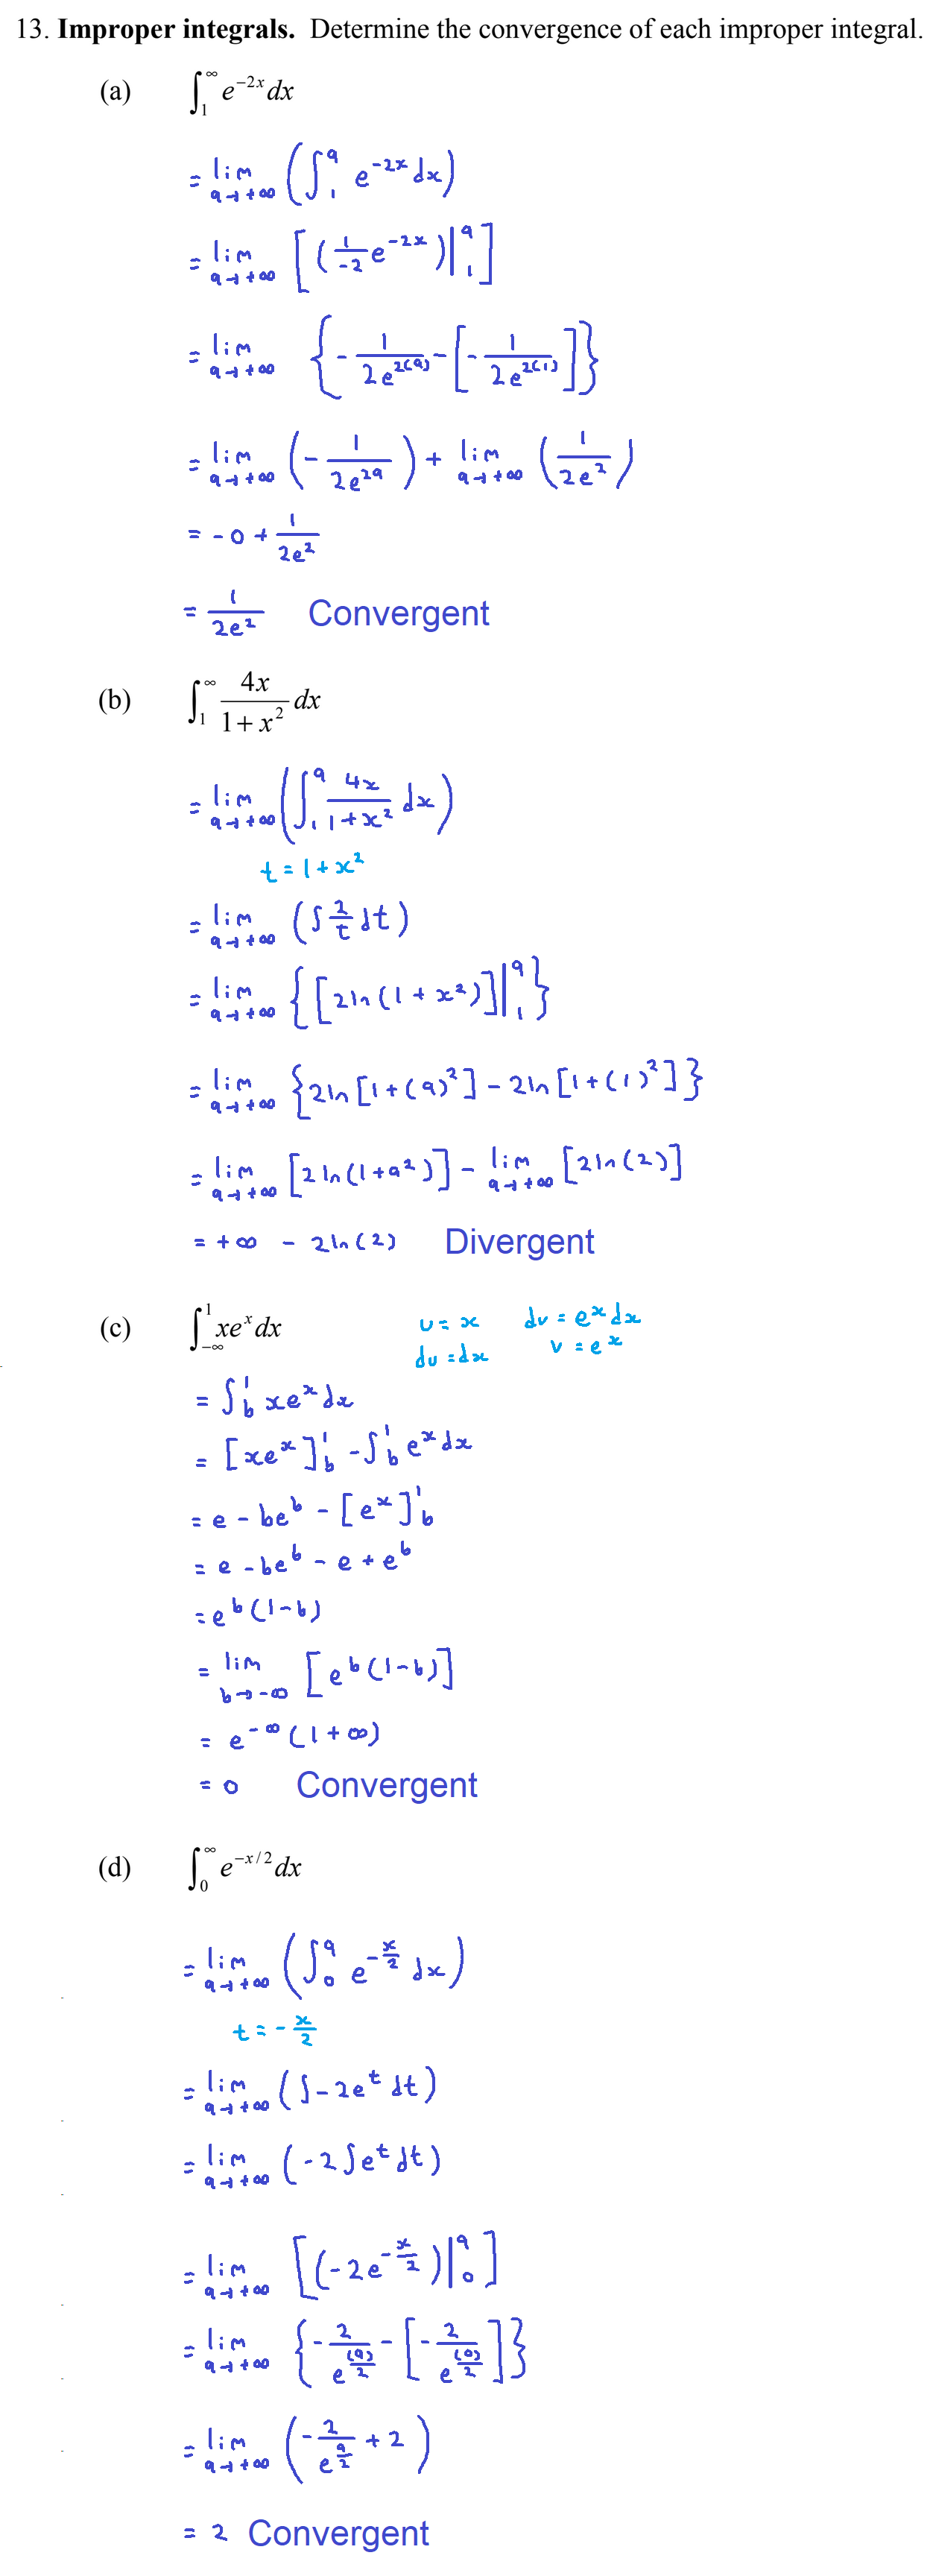 13. Improper integrals. Determine the convergence of each improper integral.
(a) ∫₁^∞ e^{-2x} dx
= lim_{a→+∞} (∫₁^a e^{-2x} dx)
= lim_{a→+∞} [(1/-2 e^{-2x})|₁^a]
= lim_{a→+∞} {-1/(2e^{2(a)}) - [-1/(2e^{2(1)})]}
= lim_{a→+∞} (-1/(2e^{2a})) + lim_{a→+∞} (1/(2e²))
= -0 + 1/(2e²)
= 1/(2e²) Convergent
(b) ∫₁^∞ 4x/(1+x²) dx
= lim_{a→+∞} (∫₁^a 4x/(1+x²) dx)
t = 1 + x²
= lim_{a→+∞} (∫ 2/t dt)
= lim_{a→+∞} {[2ln(1+x²)]|₁^a}
= lim_{a→+∞} {2ln[1+(a)²] - 2ln[1+(1)²]}
= lim_{a→+∞} [2ln(1+a²)] - lim_{a→+∞} [2ln(2)]
= +∞ - 2ln(2) Divergent
(c) ∫_{-∞}^1 xe^x dx u = x dv = e^x dx
du = dx v = e^x
= ∫_b^1 xe^x dx
= [xe^x]_b^1 - ∫_b^1 e^x dx
= e - be^b - [e^x]_b^1
= e - be^b - e + e^b
= e^b(1-b)
= lim_{b→-∞} [e^b(1-b)]
= e^{-∞}(1+∞)
= 0 Convergent
(d) ∫₀^∞ e^{-x/2} dx
= lim_{a→+∞} (∫₀^a e^{-x/2} dx)
t = -x/2
= lim_{a→+∞} (∫-2e^t dt)
= lim_{a→+∞} (-2∫e^t dt)
= lim_{a→+∞} [(-2e^{-x/2})|₀^a]
= lim_{a→+∞} {-2/e^{(a)/2} - [-2/e^{(0)/2}]}
= lim_{a→+∞} (-2/e^{a/2} + 2)
= 2 Convergent